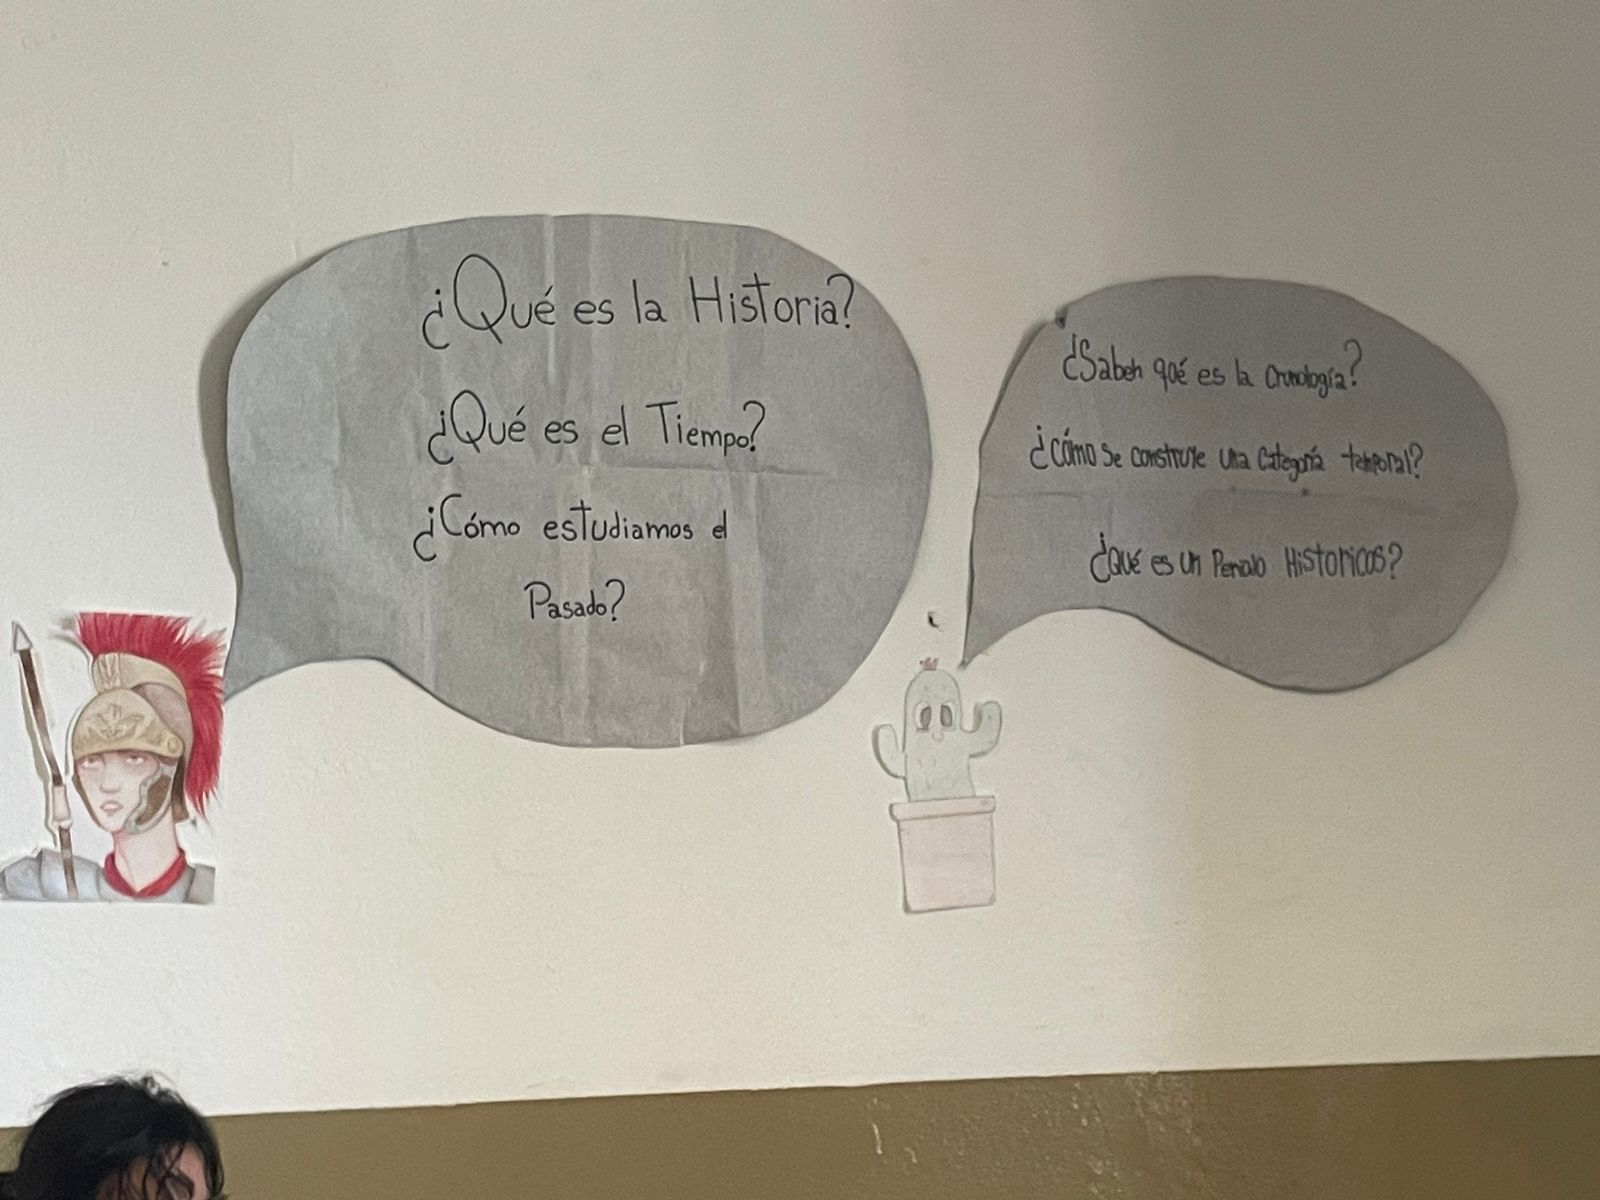 ¿Qué es la Historia?
¿Qué es el Tiempo?
¿Cómo estudiamos el
Pasado?
¿Saben qué es la Cronología?
¿cómo se construye una Categoría temporal?
¿Qué es un Periodo Historicos?